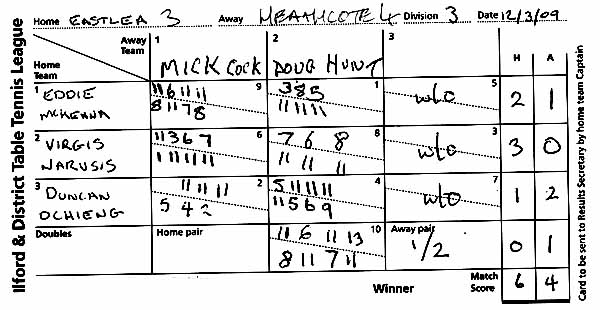 Ilford & District Table Tennis League
Home EASTLEA 3 Away HEATHCOTE 4 Division 3 Date 12/3/09
Away Team
Home Team
1 MICK COCK
2 DOUG HUNT
3
H A
1 EDDIE MCKENNA
9
11 6 11 11
8 11 7 8
1
3 8 5
11 11 11
5
w/o
2 1
2 VIRGIS NARUSIS
6
11 3 6 7
8
7 6 8
11 11 11
3
w/o
3 0
3 DUNCAN OCHIENG
2
11 11 11
5 4 2
4
5 11 11 11
11 5 6 9
7
w/o
1 2
Doubles
Home pair
10
11 6 11 13
8 11 7 11
Away pair
1/2
0 1
Winner
Match Score
6 4
Card to be sent to Results Secretary by home team Captain